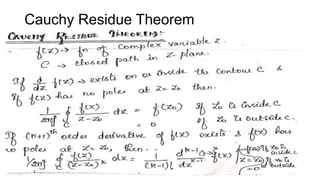 Cauchy Residue Theorem
CAUCHY RESIDUE THEOREM:
f(z) → fn of complex variable z.
C → closed path in z-plane.
If d/dz f(z) → exists on or inside the contour C &
If f(z) has no poles at z=z₀ then.
1/2πj ∮ f(z)/z-z₀ dz = f(z₀) If z₀ is inside C
= 0 If z₀ is outside C.
If (k+1)th order derivative of f(z) exists & f(z) has
no poles at z=z₀, then..
1/2πj ∮ f(z)/(z-z₀)k dz = 1/(k-1)! dk-1/dzk-1 f(z)